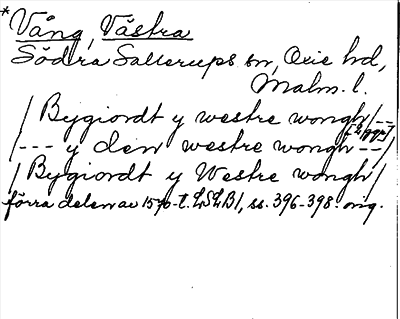 * Vång, Västra
Södra Sallerups sn, Oxie hd,
Malm. l.
/ Bygiordt y westre wongh /---
/--- y den westre wongh --/
/ Bygiordt y Westre wongh /
förra delen av 1570-t. LSLB1, ss. 396-398. orig.